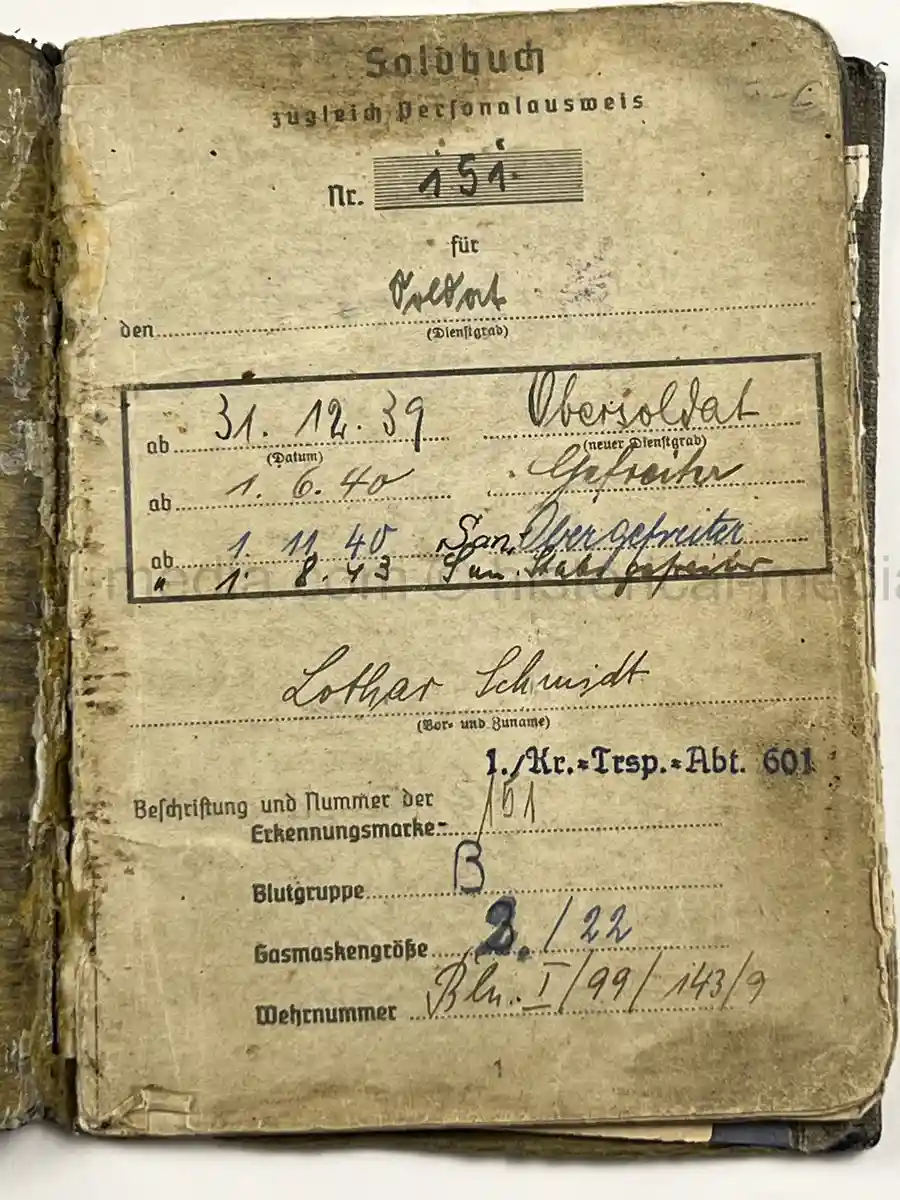 Soldbuch
zugleich Personalausweis
Nr. 151.
für
den Soldat
(Dienstgrad)
ab 31. 12. 39 Obersoldat
(Datum) (neuer Dienstgrad)
ab 1. 6. 40 Gefreiter
ab 1. 11. 40 San. Obergefreiter
" 1. 8. 43 San. Stabsgefreiter
media.com © historical-media
Lothar Schmidt
(Vor- und Zuname)
1./Kr.=Trsp.=Abt. 601
Beschriftung und Nummer der
Erkennungsmarke 151
Blutgruppe B
Gasmaskengröße 2. / 22
Wehrnummer Bln. I/99/143/9
1